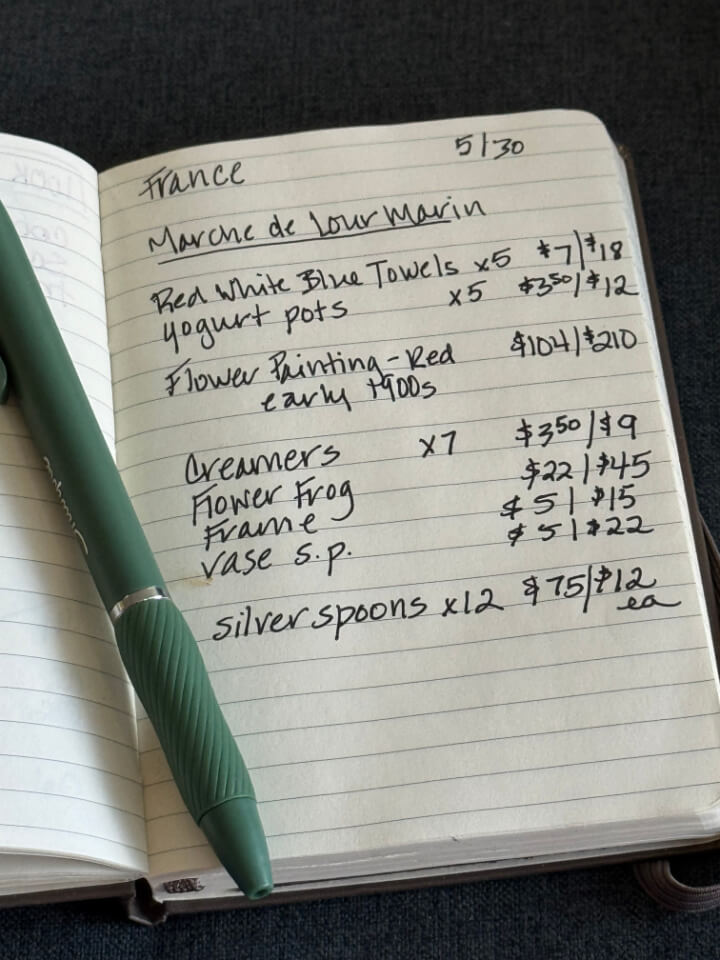 France 5/30
Marche de Lourmarin
Red White Blue Towels x5 $7/$18
yogurt pots x5 $3.50/$12
Flower Painting - Red $104/$210
early 1900s
Creamers x7 $3.50/$9
Flower Frog $22/$45
Frame $5/$15
vase s.p. $5/$22
silver spoons x12 $75/$12
ea